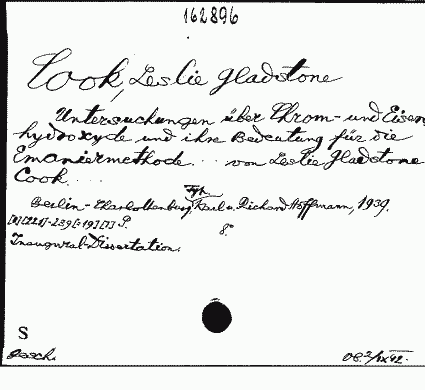 162896
Cook, Leslie Gladstone
Untersuchungen über Chrom- und Eisen
hydroxyde und ihre Bedeutung für die
Emaniermethode ... von Leslie Gladstone
Cook ...
Berlin-Charlottenburg, Karl u. Richard Hoffmann, 1939.
P. 8°
Inaugural-Dissertation.
S